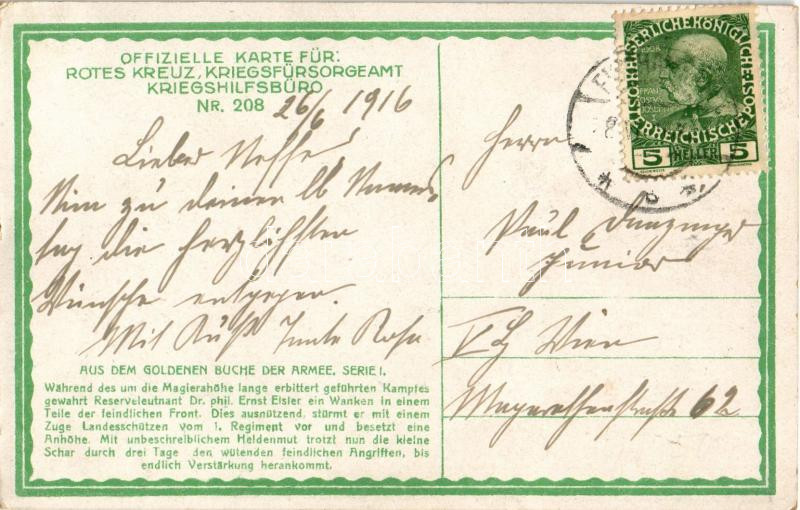 OFFIZIELLE KARTE FÜR:
ROTES KREUZ, KRIEGSFÜRSORGEAMT
KRIEGSHILFSBÜRO
NR. 208
26/6 1916
Lieber Neffe!
Nim zu deinem lb Namens
tag die herzlichsten
Wünsche entgegen.
Mit Kuß Tante Rosa
AUS DEM GOLDENEN BUCHE DER ARMEE, SERIE I.
Während des um die Magierahöhe lange erbittert geführten Kampfes
gewahrt Reserveleutnant Dr. phil. Ernst Eisler ein Wanken in einem
Teile der feindlichen Front. Dies ausnützend, stürmt er mit einem
Zuge Landesschützen vom 1. Regiment vor und besetzt eine
Anhöhe. Mit unbeschreiblichem Heldenmut trotzt nun die kleine
Schar durch drei Tage den wütenden feindlichen Angriffen, bis
endlich Verstärkung herankommt.
KAISERLICHE KÖNIGLICHE
ÖSTERREICHISCHE POST
1908
FRANZ
JOSEPH I
5 HELLER 5
Herrn
Paul
Junior
Wien
62